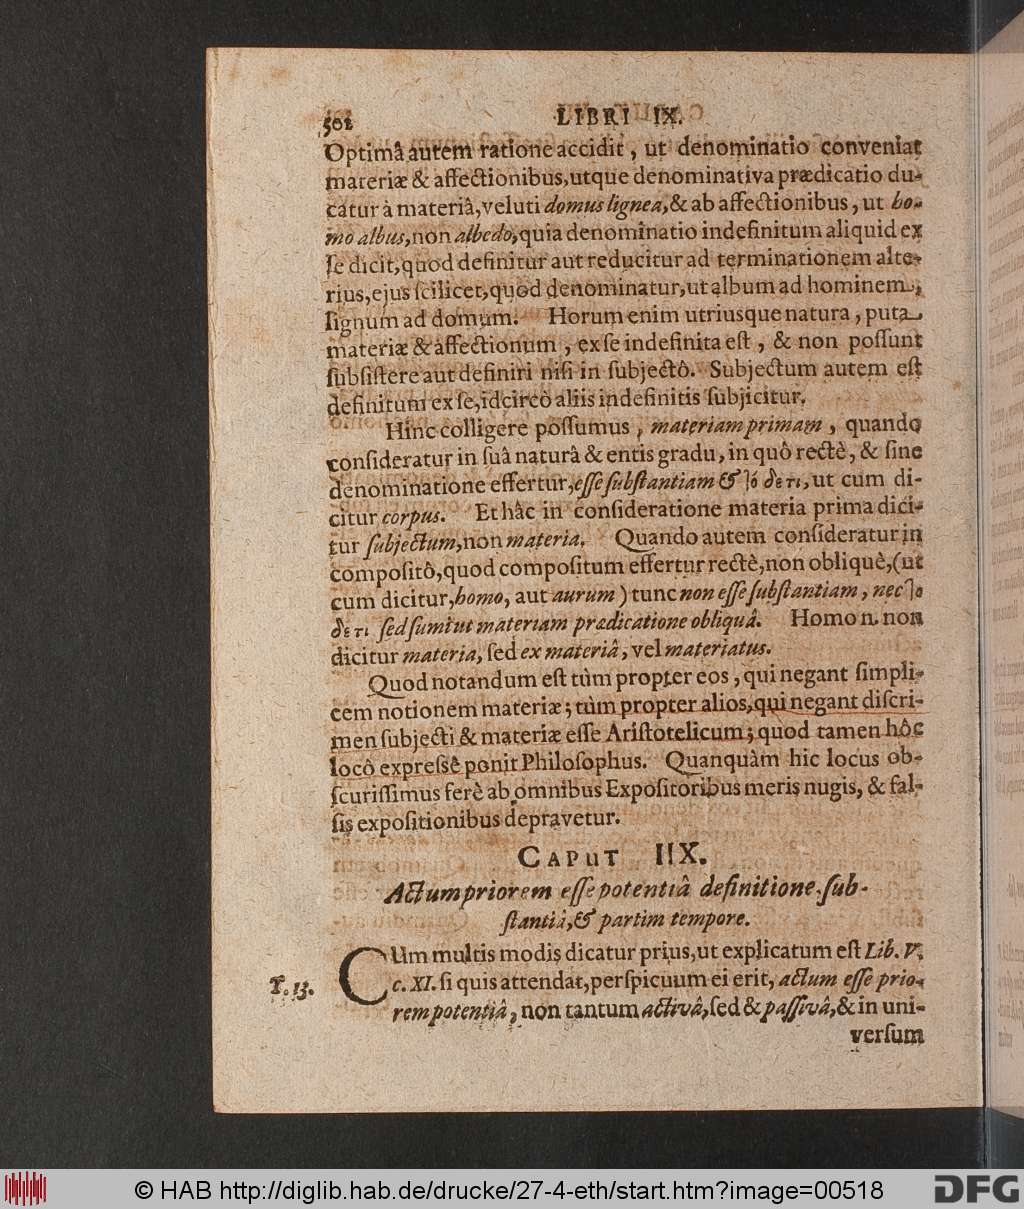 502 LIBRI IX.
Optimâ autem ratione accidit, ut denominatio conveniat
materiæ & affectionibus, utque denominativa prædicatio du-
catur à materiâ, veluti domus lignea, & ab affectionibus, ut ho-
mo albus, non albedo, quia denominatio indefinitum aliquid ex
se dicit, quod definitur aut reducitur ad terminationem alte-
rius, ejus scilicet, quod denominatur, ut album ad hominem,
lignum ad domum. Horum enim utriusque natura, puta
materiæ & affectionum, ex se indefinita est, & non possunt
subsistere aut definiri nisi in subjectô. Subjectum autem est
definitum ex se, idcircò aliis indefinitis subjicitur.
Hinc colligere possumus, materiam primam, quando
consideratur in suâ naturâ & entis gradu, in quô rectè, & sine
denominatione effertur, esse substantiam & τό δε τι, ut cum di-
citur corpus. Et hâc in consideratione materia prima dici-
tur subjectum, non materia. Quando autem consideratur in
compositô, quod compositum effertur rectè, non obliquè, (ut
cum dicitur, homo, aut aurum) tunc non esse substantiam, nec τό
δε τι sed sumi ut materiam prædicatione obliquâ. Homo n. non
dicitur materia, sed ex materiâ, vel materiatus.
Quod notandum est tùm propter eos, qui negant simpli-
cem notionem materiæ; tùm propter alios, qui negant discri-
men subjecti & materiæ esse Aristotelicum; quod tamen hôc
locô expressè ponit Philosophus. Quanquàm hic locus ob-
scurissimus ferè ab omnibus Expositoribus meris nugis, & fal-
sis expositionibus depravetur.
CAPUT IIX.
Actum priorem esse potentiâ definitione, sub-
stantiâ, & partim tempore.
CUm multis modis dicatur prius, ut explicatum est Lib. V.
T. 13. c. XI. si quis attendat, perspicuum ei erit, actum esse prio-
rem potentiâ, non tantum activâ, sed & passivâ, & in uni-
versum
© HAB http://diglib.hab.de/drucke/27-4-eth/start.htm?image=00518 DFG